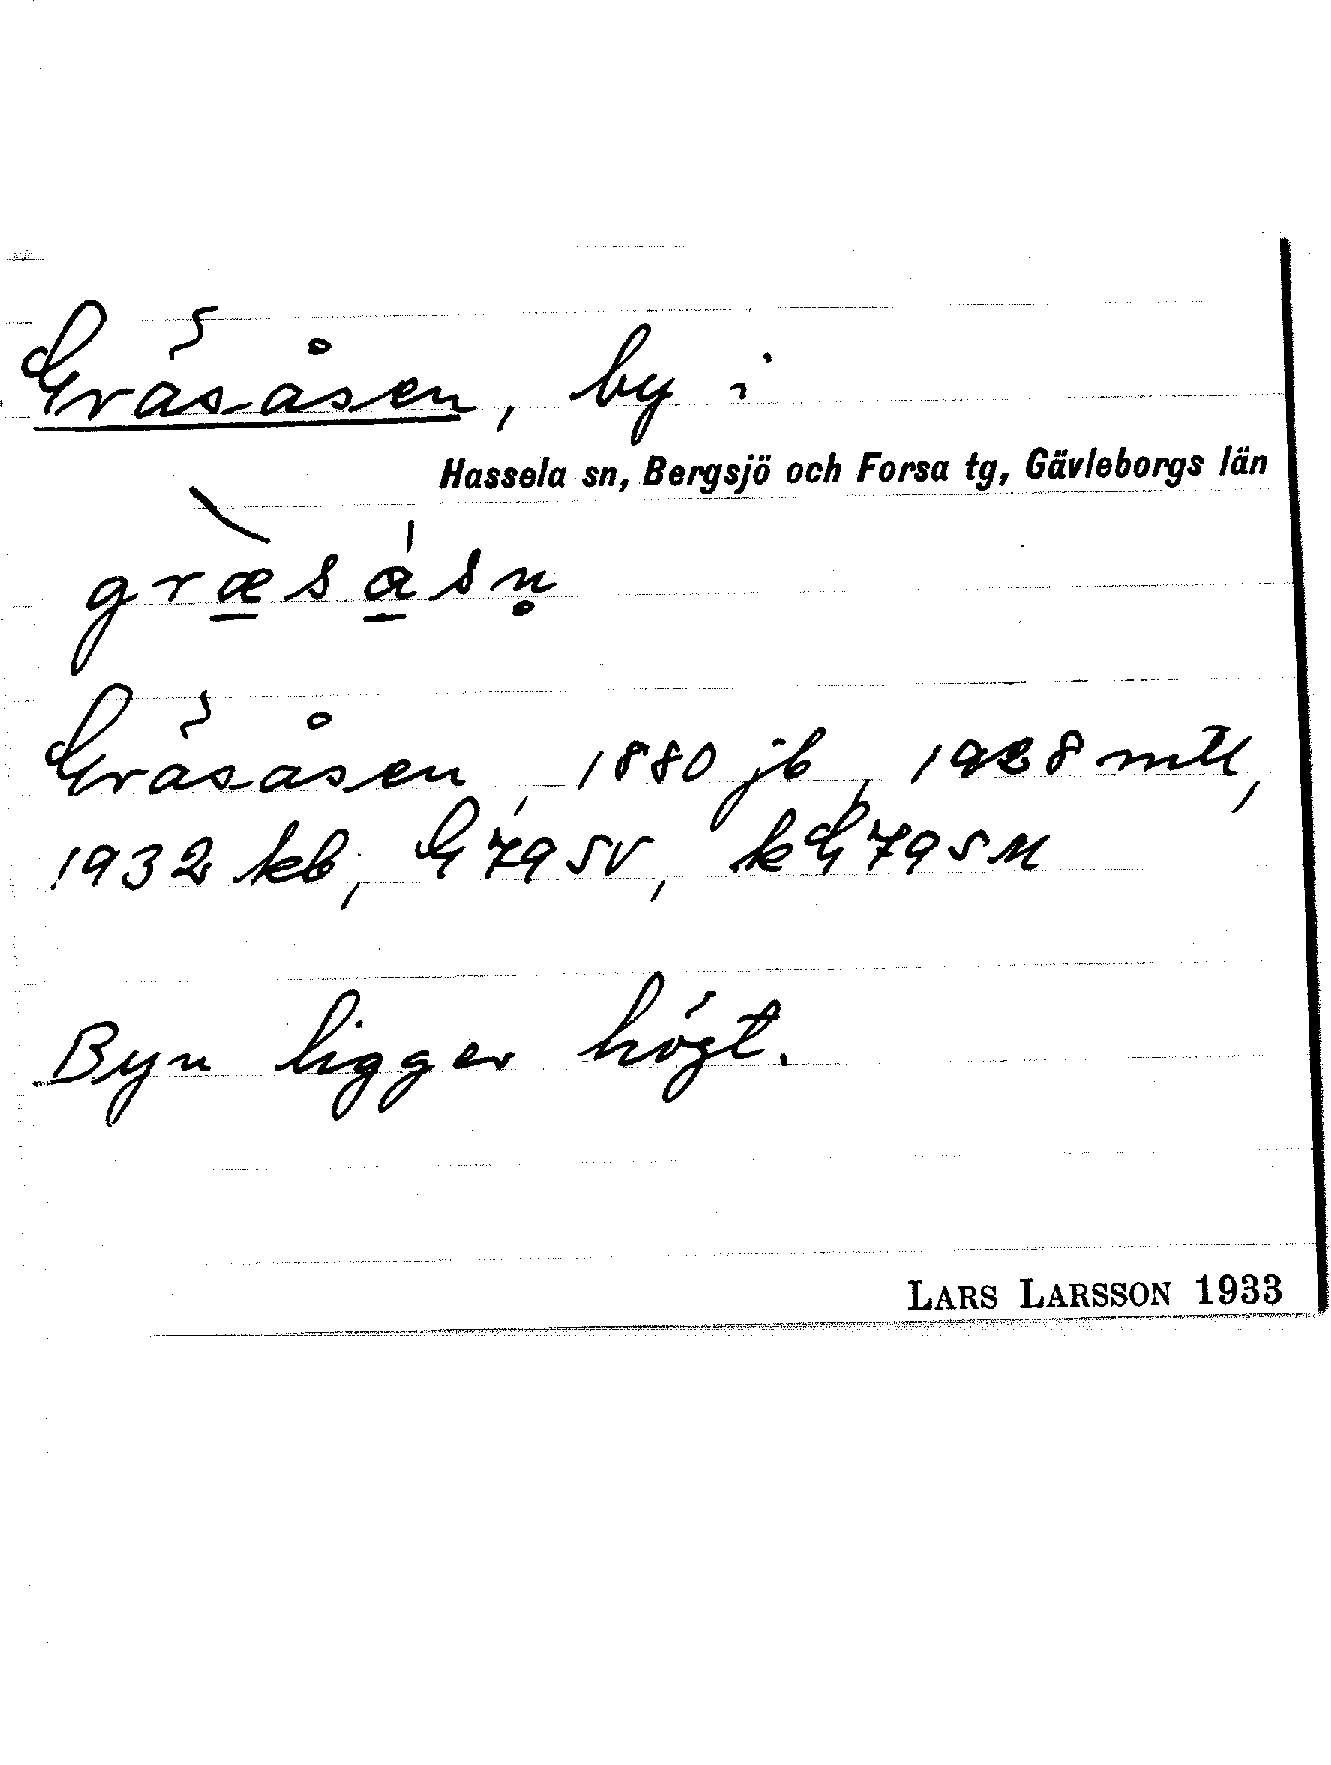 Gräsåsen, by i
Hassela sn, Bergsjö och Forsa tg, Gävleborgs län
græ̀såsn̥
Gräsåsen, 1880 jb, 1928 mtl,
1932 kb, G 79 SV, kG 79 SM
Byn ligger högt.
LARS LARSSON 1933